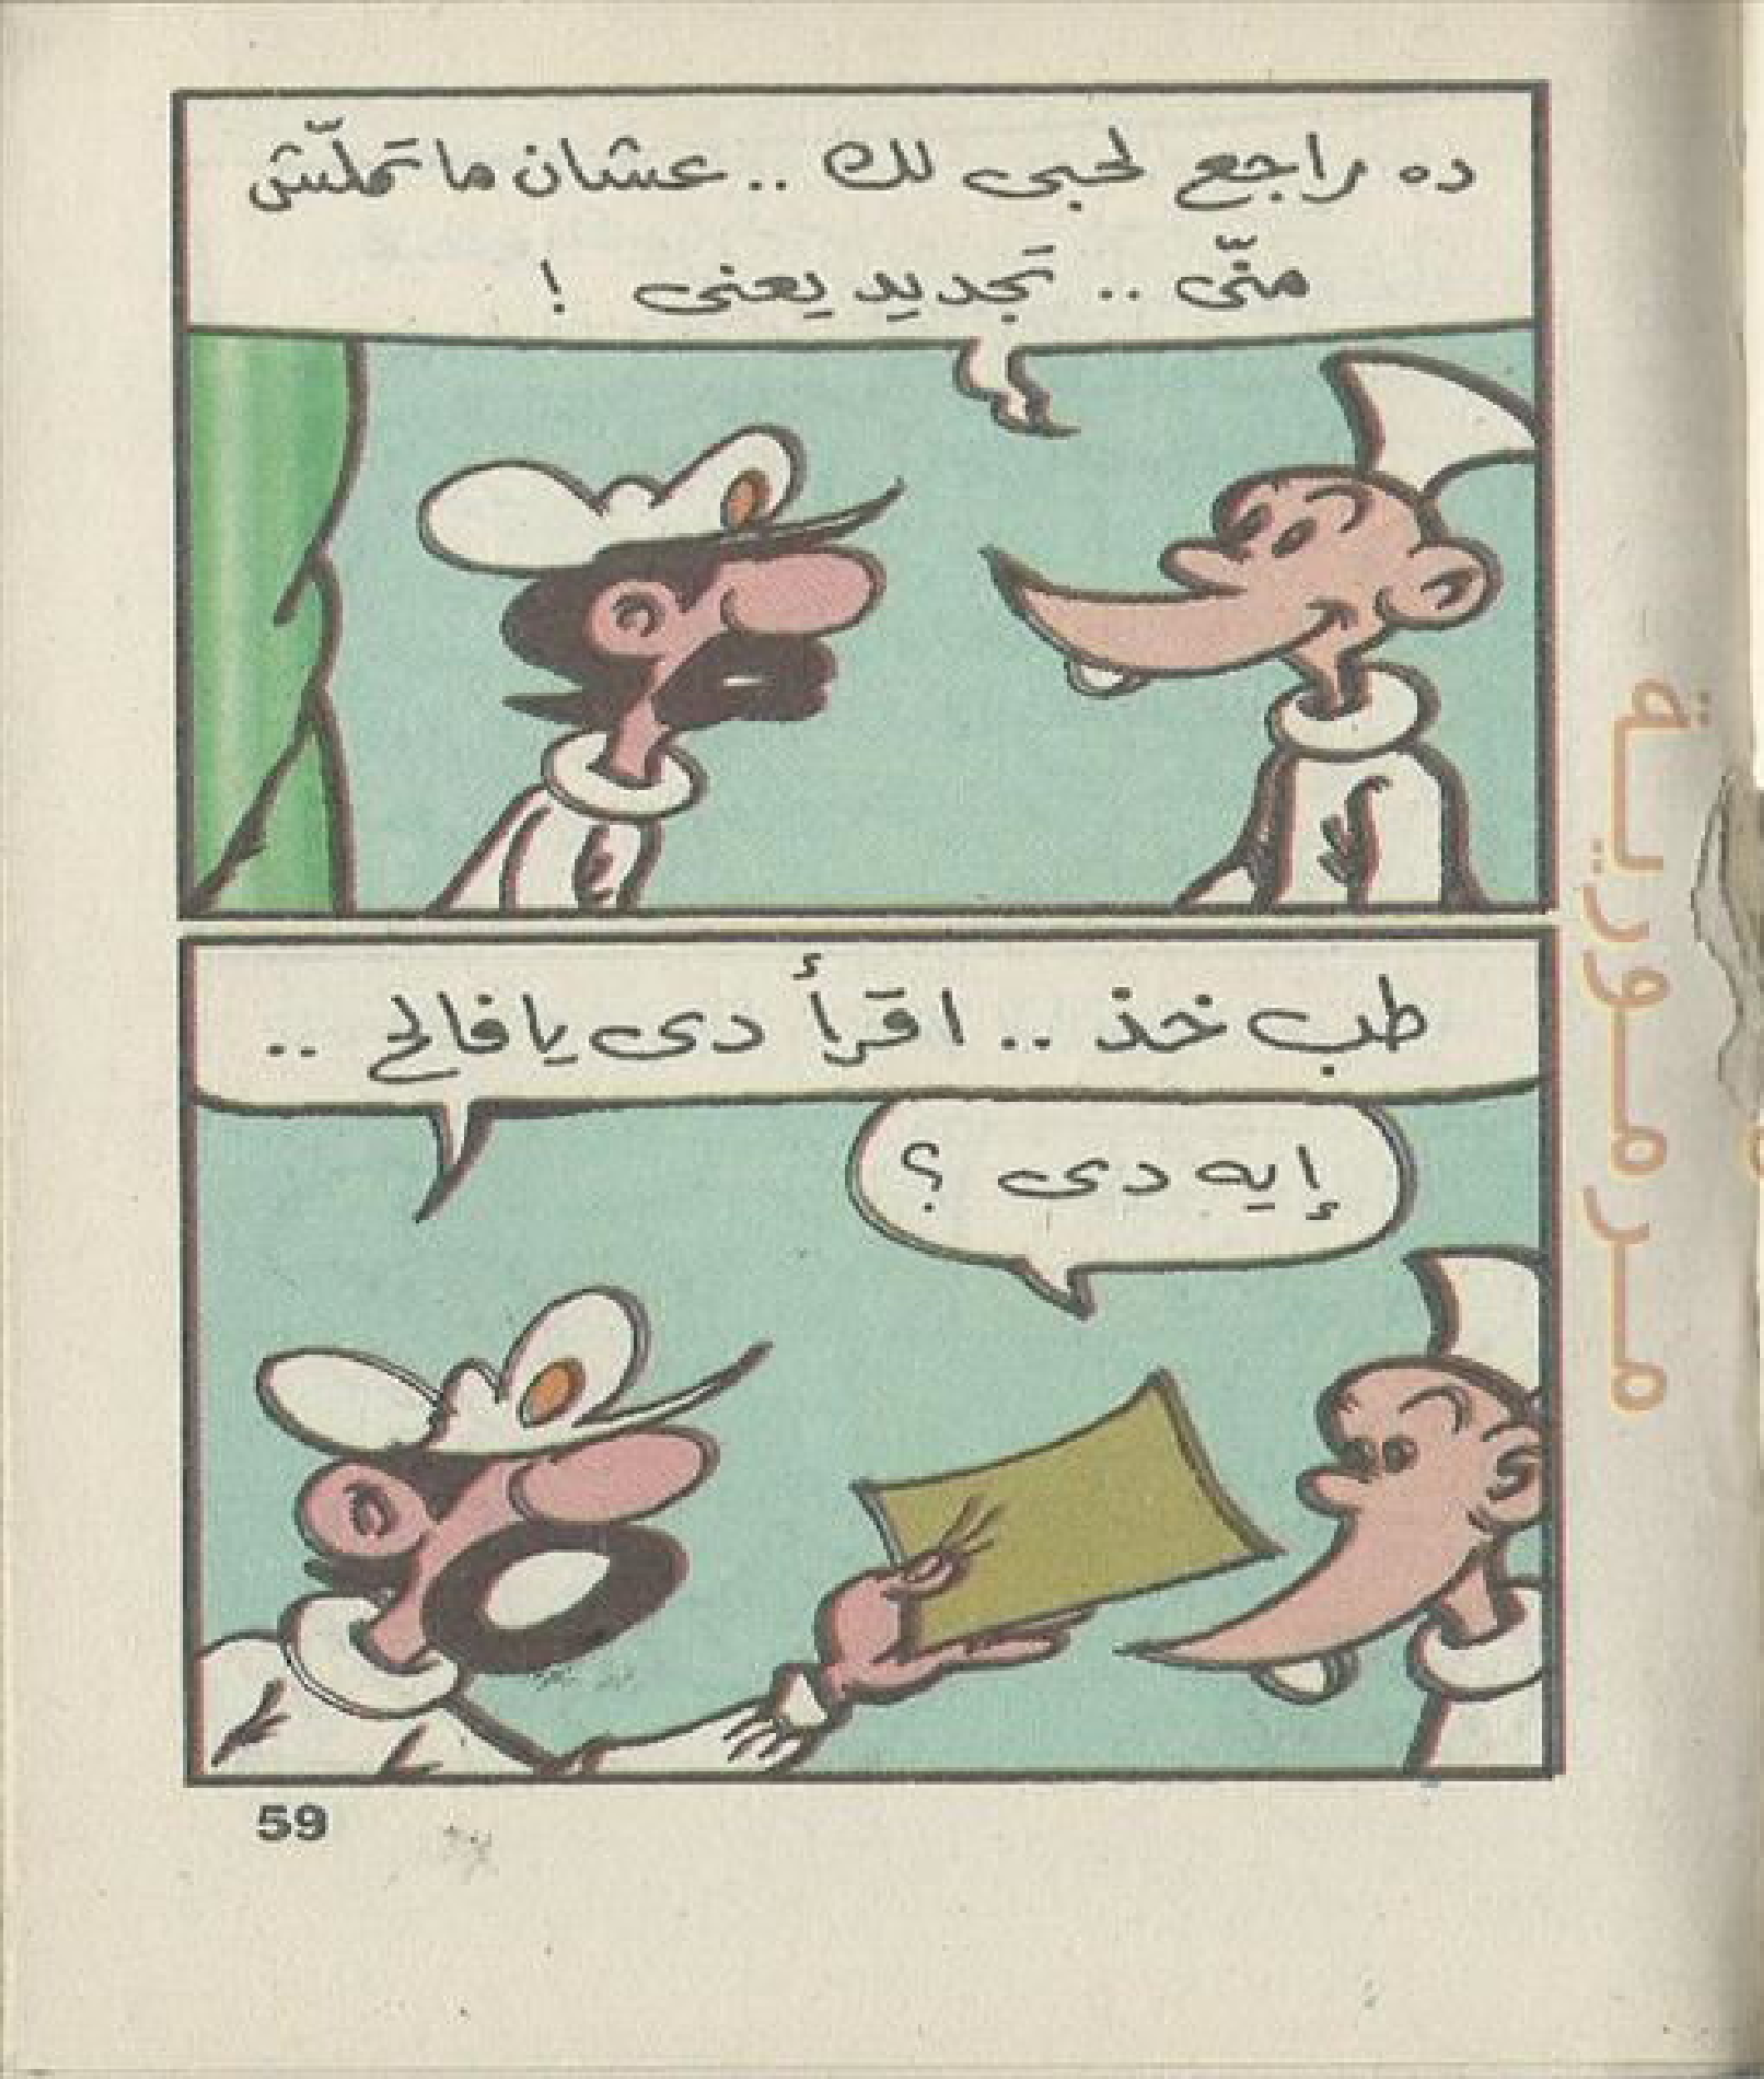 ده راجع لحبى لك .. عشان ما تملّش
منّى .. تجديد يعنى !
طب خذ .. اقرأ دى يا فالح ..
إيه دى ؟
59
مرمورية